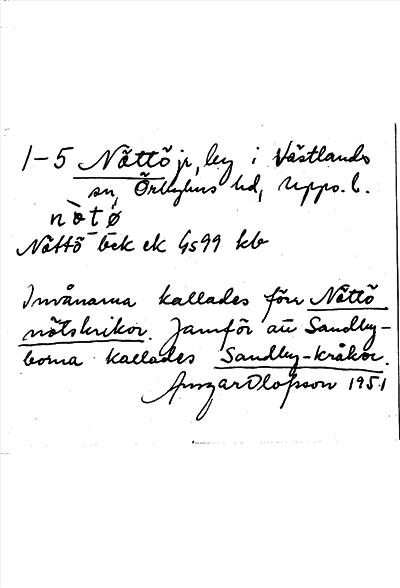 1-5 Nättö jr, by i Västlands
sn, Örbyhus hd, Upps. l.
nö̀tö́
Nättö bek ek Gs99 kb
Invånarna kallades förr Nättö
nötskrikor. Jämför att Sandby-
borna kallades Sandby-kråkor.
Ansgar Olofsson 1951